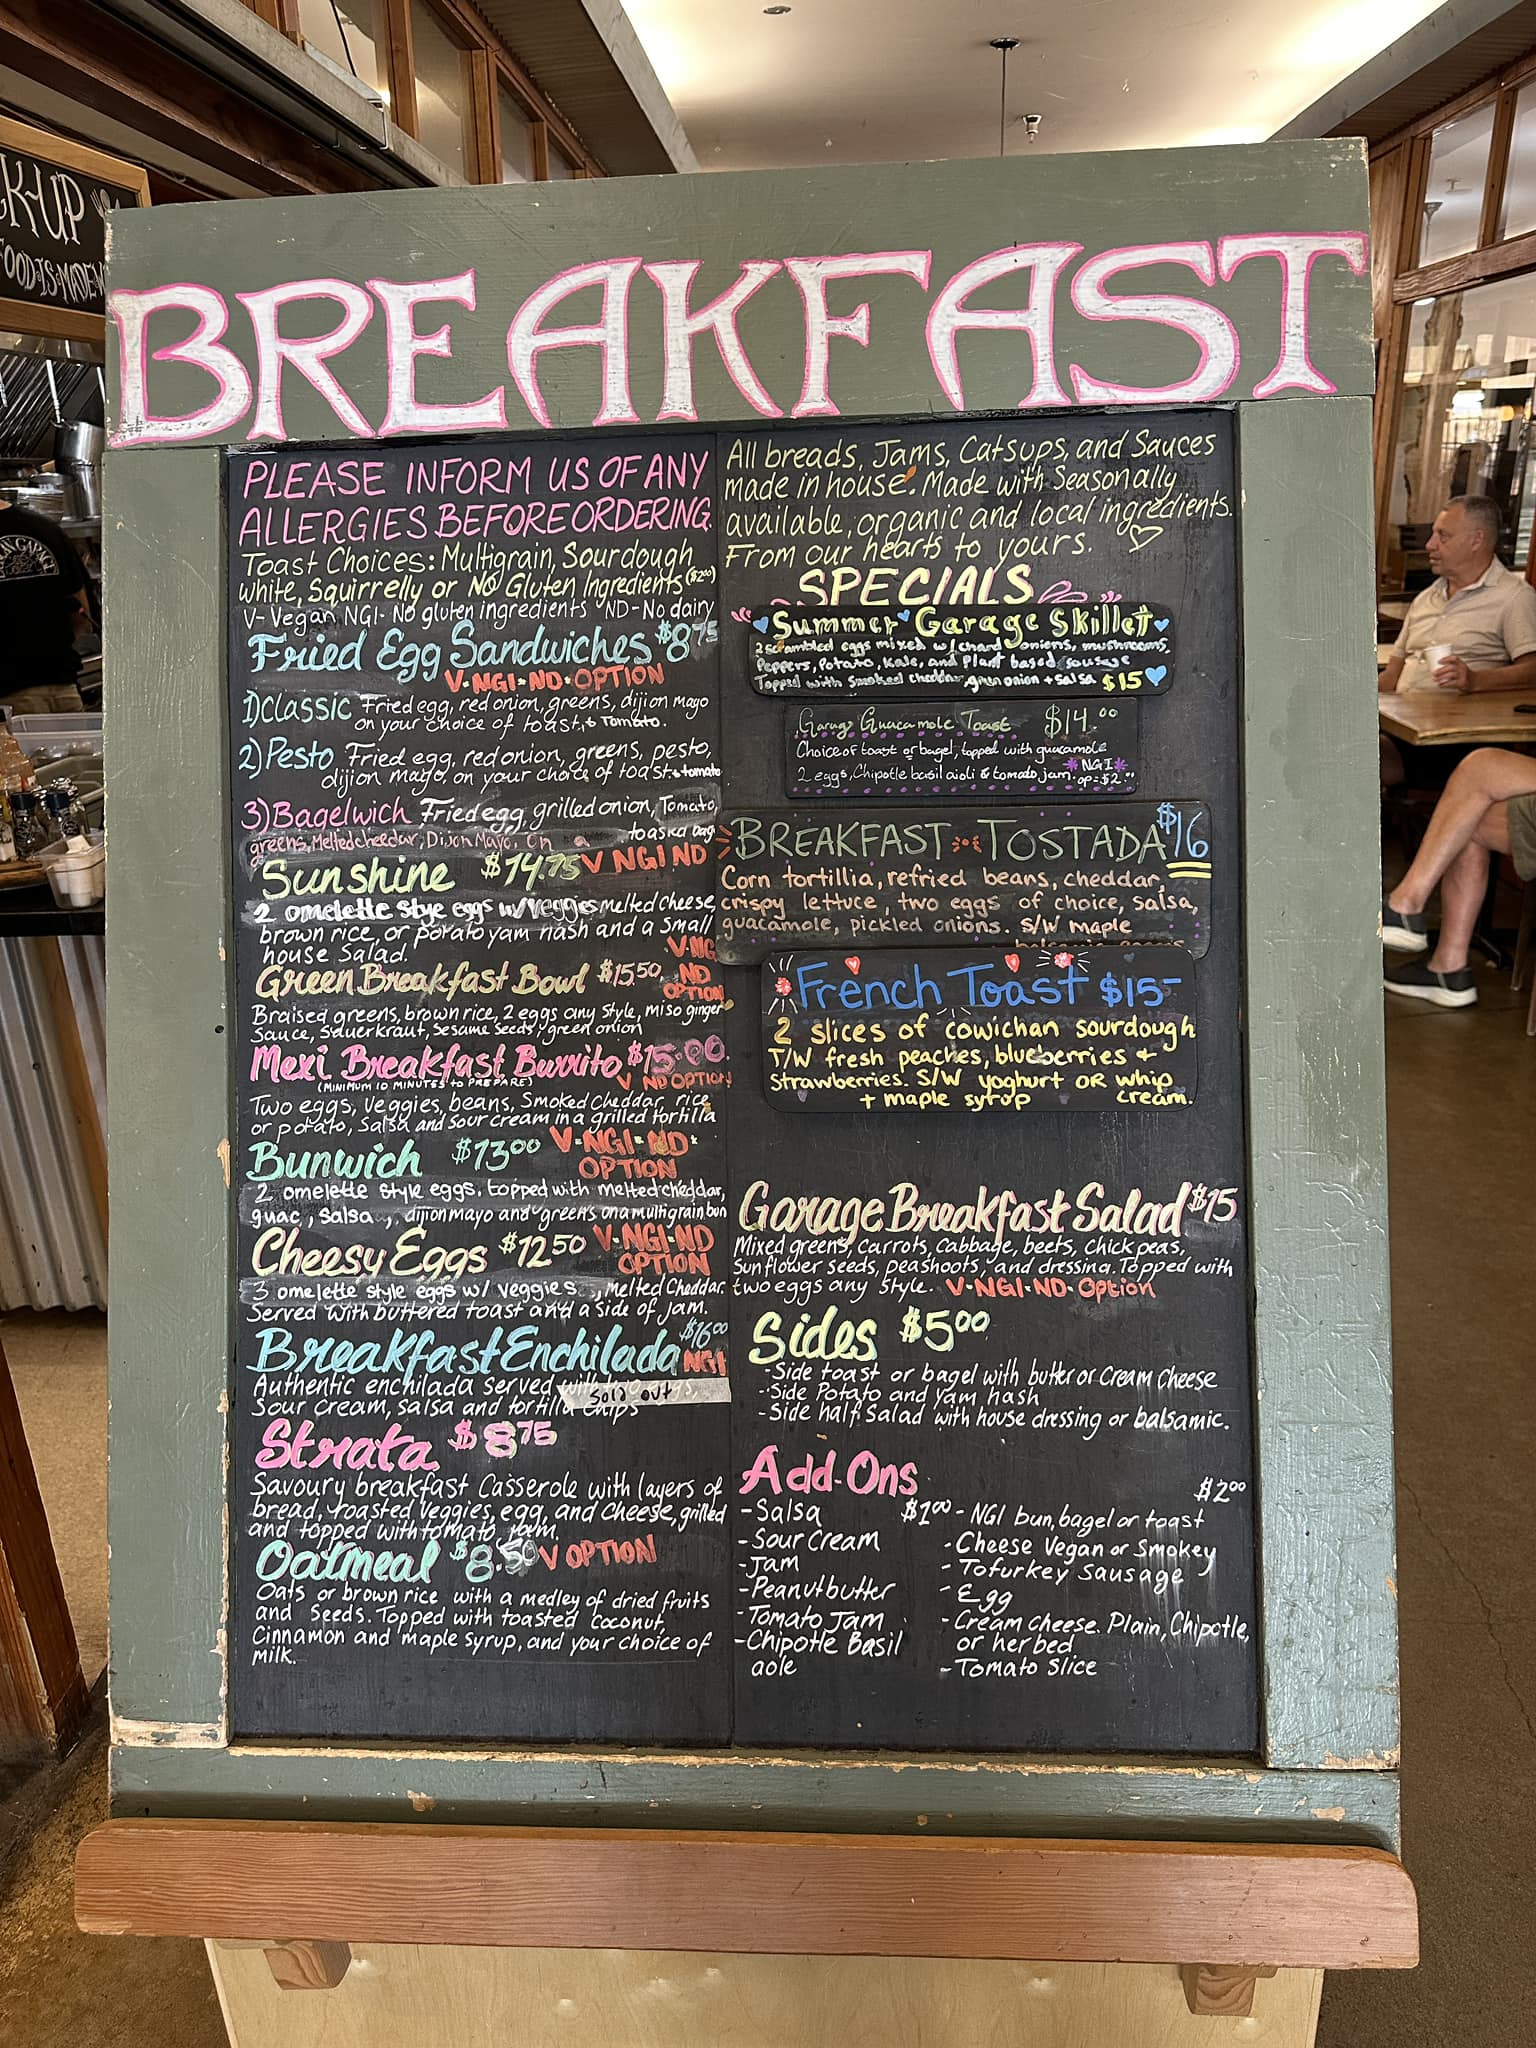 CK-UP
FOOD·IS·MADE
BREAKFAST
PLEASE INFORM US OF ANY
ALLERGIES BEFORE ORDERING.
Toast Choices: Multigrain, Sourdough
White, Squirrelly or No Gluten Ingredients ($2⁰⁰)
V-Vegan NGI-No gluten ingredients ND-No dairy
Fried Egg Sandwiches $8⁷⁵
V·NGI·ND·OPTION
1) Classic Fried egg, red onion, greens, dijion mayo
on your choice of toast, + Tomato.
2) Pesto Fried egg, red onion, greens, pesto,
dijion mayo, on your choice of toast. + tomato
3) Bagelwich Fried egg, grilled onion, Tomato,
greens, Melted cheedar, Dijon Mayo, On a toasted bagl
Sunshine $14.75 V NGI ND
2 omelette stye eggs w/veggies melted cheese,
brown rice, or potato yam hash and a small
house Salad.
Green Breakfast Bowl $15.50 V·NG
ND
OPTION
Braised greens, brown rice, 2 eggs any style, miso ginger
Sauce, Sauerkraut, Sesame Seeds, green onion
Mexi Breakfast Burrito $15.00
(MINIMUM 10 MINUTES to PREPARE) V ND OPTION
Two eggs, Veggies, beans, Smoked Cheddar, rice
or potato, Salsa and sour cream in a grilled tortilla
Bunwich $13⁰⁰ V·NGI·ND·
OPTION
2 omelette style eggs. topped with melted cheddar,
guac, salsa , dijion mayo and greens on a multigrain bun
Cheesy Eggs $12⁵⁰ V·NGI·ND
OPTION
3 omelette style eggs w/ veggies , melted Cheddar.
Served with buttered toast and a side of jam.
Breakfast Enchilada $16⁰⁰
NGI
Authentic enchilada served with two eggs,
Sold out
Sour cream, salsa and tortilla chips
Strata $8⁷⁵
Savoury breakfast Casserole with layers of
bread, roasted Veggies, egg, and cheese, grilled
and topped with tomato jam.
Oatmeal $8.50 V OPTION
Oats or brown rice with a medley of dried fruits
and Seeds. Topped with toasted coconut,
Cinnamon and maple syrup, and your choice of
milk.
All breads, Jams, Catsups, and Sauces
made in house. Made with Seasonally
available, organic and local ingredients.
From our hearts to yours.
SPECIALS
Summer Garage Skillet
2 scrambled eggs mixed w/ chard onions, mushrooms,
Peppers, Potato, Kale, and Plant based sausage
Topped with Smoked cheddar, green onion + salsa $15
Garage Guacamole Toast $14.⁰⁰
Choice of toast or bagel, topped with guacamole
2 eggs, Chipotle basil aioli & tomato jam. *NGI*
op = $2.⁰⁰
BREAKFAST TOSTADA $16
Corn tortillia, refried beans, cheddar,
crispy lettuce, two eggs of choice, salsa,
guacamole, pickled onions. S/W maple
French Toast $15-
2 slices of cowichan sourdough
T/W fresh peaches, blueberries +
strawberries. S/W yoghurt OR whip
+ maple syrup cream.
Garage Breakfast Salad $15
Mixed greens, carrots, cabbage, beets, chick peas,
Sunflower seeds, peashoots, and dressing. Topped with
two eggs any style. V·NGI·ND·Option
Sides $5⁰⁰
-Side toast or bagel with butter or Cream Cheese
-Side Potato and yam hash
-Side half Salad with house dressing or balsamic.
Add-Ons
-Salsa $1⁰⁰
-Sour Cream
-Jam
-Peanutbutter
-Tomato Jam
-Chipotle Basil
aole
$2⁰⁰
-NGI bun, bagel or toast
-Cheese Vegan or Smokey
-Tofurkey Sausage
-Egg
-Cream cheese. Plain, Chipotle,
or herbed
-Tomato Slice